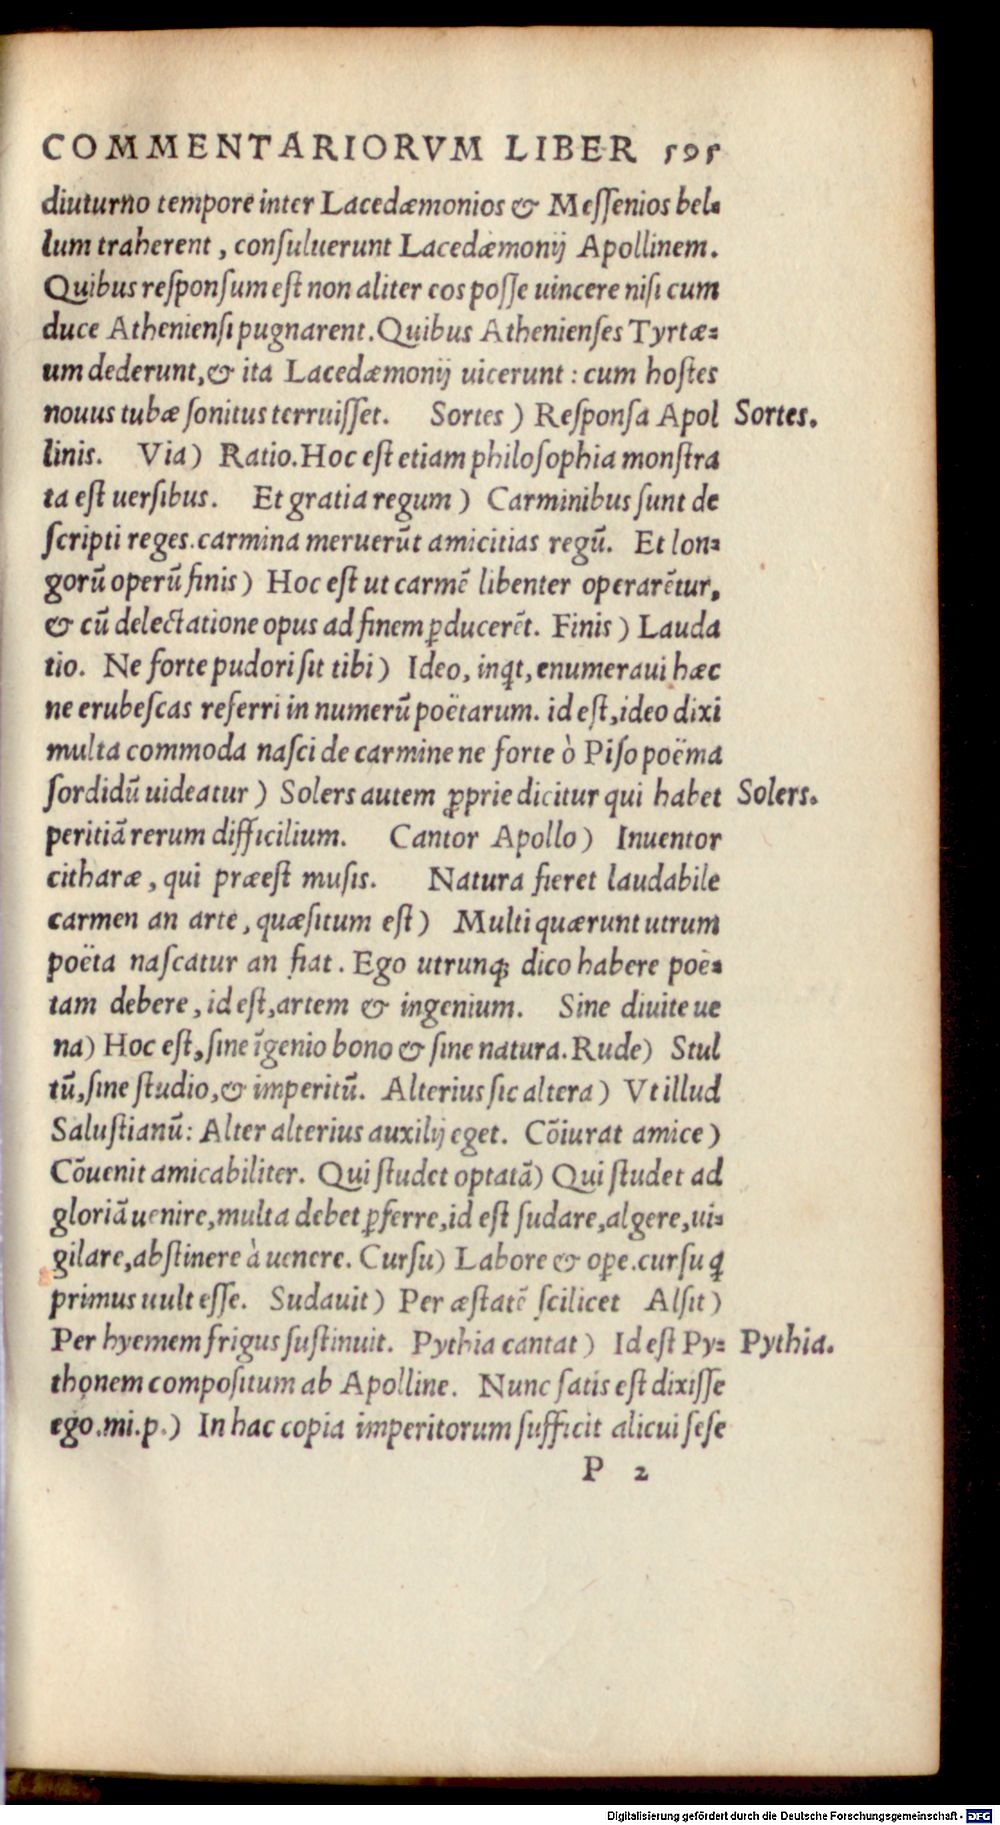 COMMENTARIORVM LIBER 595
diuturno tempore inter Lacedæmonios & Meſſenios bel-
lum traherent, conſuluerunt Lacedæmonij Apollinem.
Quibus reſponſum eſt non aliter eos poſſe uincere niſi cum
duce Athenienſi pugnarent. Quibus Athenienſes Tyrtæ-
um dederunt, & ita Lacedæmonij uicerunt: cum hoſtes
nouus tubæ ſonitus terruiſſet. Sortes) Reſponſa Apol Sortes.
linis. Via) Ratio. Hoc eſt etiam philoſophia monſtra
ta eſt uerſibus. Et gratia regum) Carminibus ſunt de
ſcripti reges. carmina meruerūt amicitias regū. Et lon-
gorū operū finis) Hoc eſt ut carmē libenter operarētur,
& cū delectatione opus ad finem ꝑducerēt. Finis) Lauda
tio. Ne forte pudori ſit tibi) Ideo, inqt, enumeraui hæc
ne erubeſcas referri in numerū poëtarum. id eſt, ideo dixi
multa commoda naſci de carmine ne forte ò Piſo poëma
ſordidū uideatur) Solers autem ꝓprie dicitur qui habet Solers.
peritiā rerum difficilium. Cantor Apollo) Inuentor
citharæ, qui præeſt muſis. Natura fieret laudabile
carmen an arte, quæſitum eſt) Multi quærunt utrum
poëta naſcatur an fiat. Ego utrunq; dico habere poë-
tam debere, id eſt, artem & ingenium. Sine diuite ue
na) Hoc eſt, ſine īgenio bono & ſine natura. Rude) Stul
tū, ſine ſtudio, & imperitū. Alterius ſic altera) Vt illud
Saluſtianū: Alter alterius auxilij eget. Cōiurat amice)
Cōuenit amicabiliter. Qui ſtudet optatā) Qui ſtudet ad
gloriā uenire, multa debet ꝑferre, id eſt ſudare, algere, ui-
gilare, abſtinere à uenere. Curſu) Labore & oꝑe. curſu ꝗ
primus uult eſſe. Sudauit) Per æſtatē ſcilicet Alſit)
Per hyemem frigus ſuſtinuit. Pythia cantat) Id eſt Py- Pythia.
thonem compoſitum ab Apolline. Nunc ſatis eſt dixiſſe
ego.mi.p.) In hac copia imperitorum ſufficit alicui ſeſe
P 2
Digitalisierung gefördert durch die Deutsche Forschungsgemeinschaft - DFG